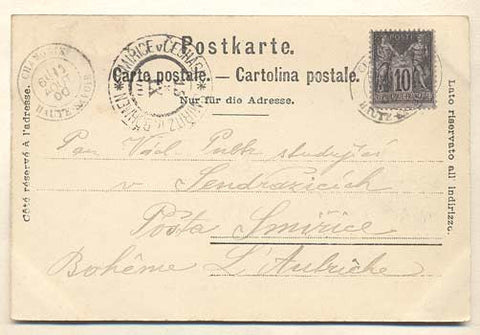 Postkarte.
Carte postale. — Cartolina postale.
Nur für die Adresse.
Côté réservé à l'adresse.
Lato riservato all' indirizzo.
10
POSTE
Pan Václ Pulk studující
v Sendražicích
Pošta Smiřice
Bohême L'Autriche